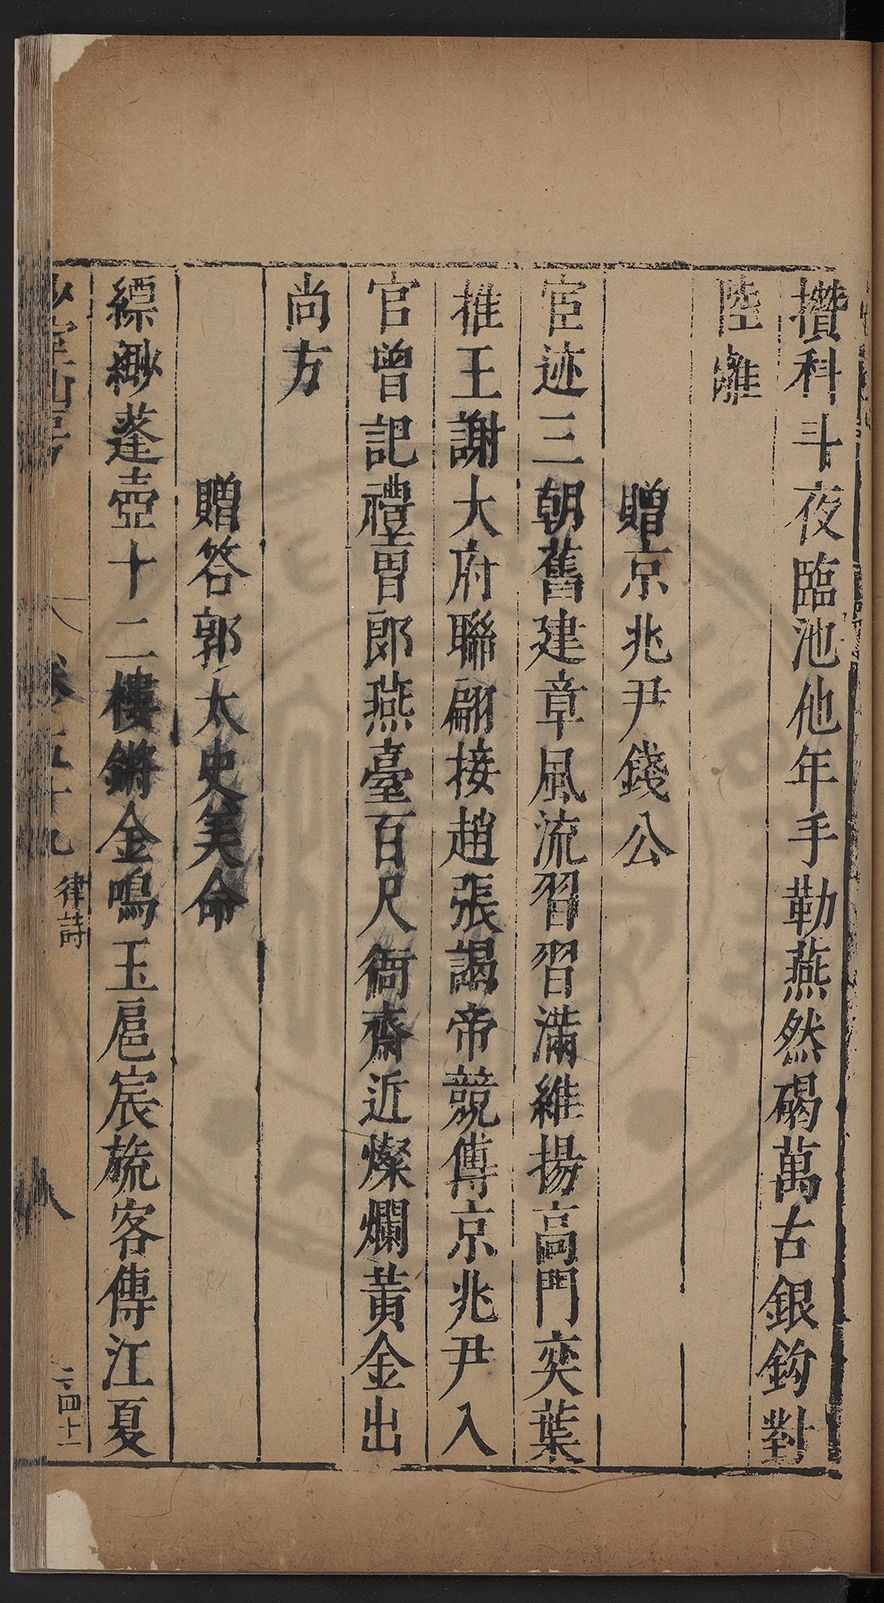 攢科斗夜臨池他年手勒燕然碣萬古銀鈎對
陸離
贈京兆尹錢公
宦迹三朝舊建章風流習習滿維揚高門奕葉
推王謝大府聯翩接趙張謁帝競傳京兆尹入
官曾記禮曹郎燕臺百尺衙齋近燦爛黃金出
尚方
贈答郭太史美命
縹緲蓬壺十二樓鏘金鳴玉扈宸旒客傳江夏
少室山房
卷五十九
律詩
八